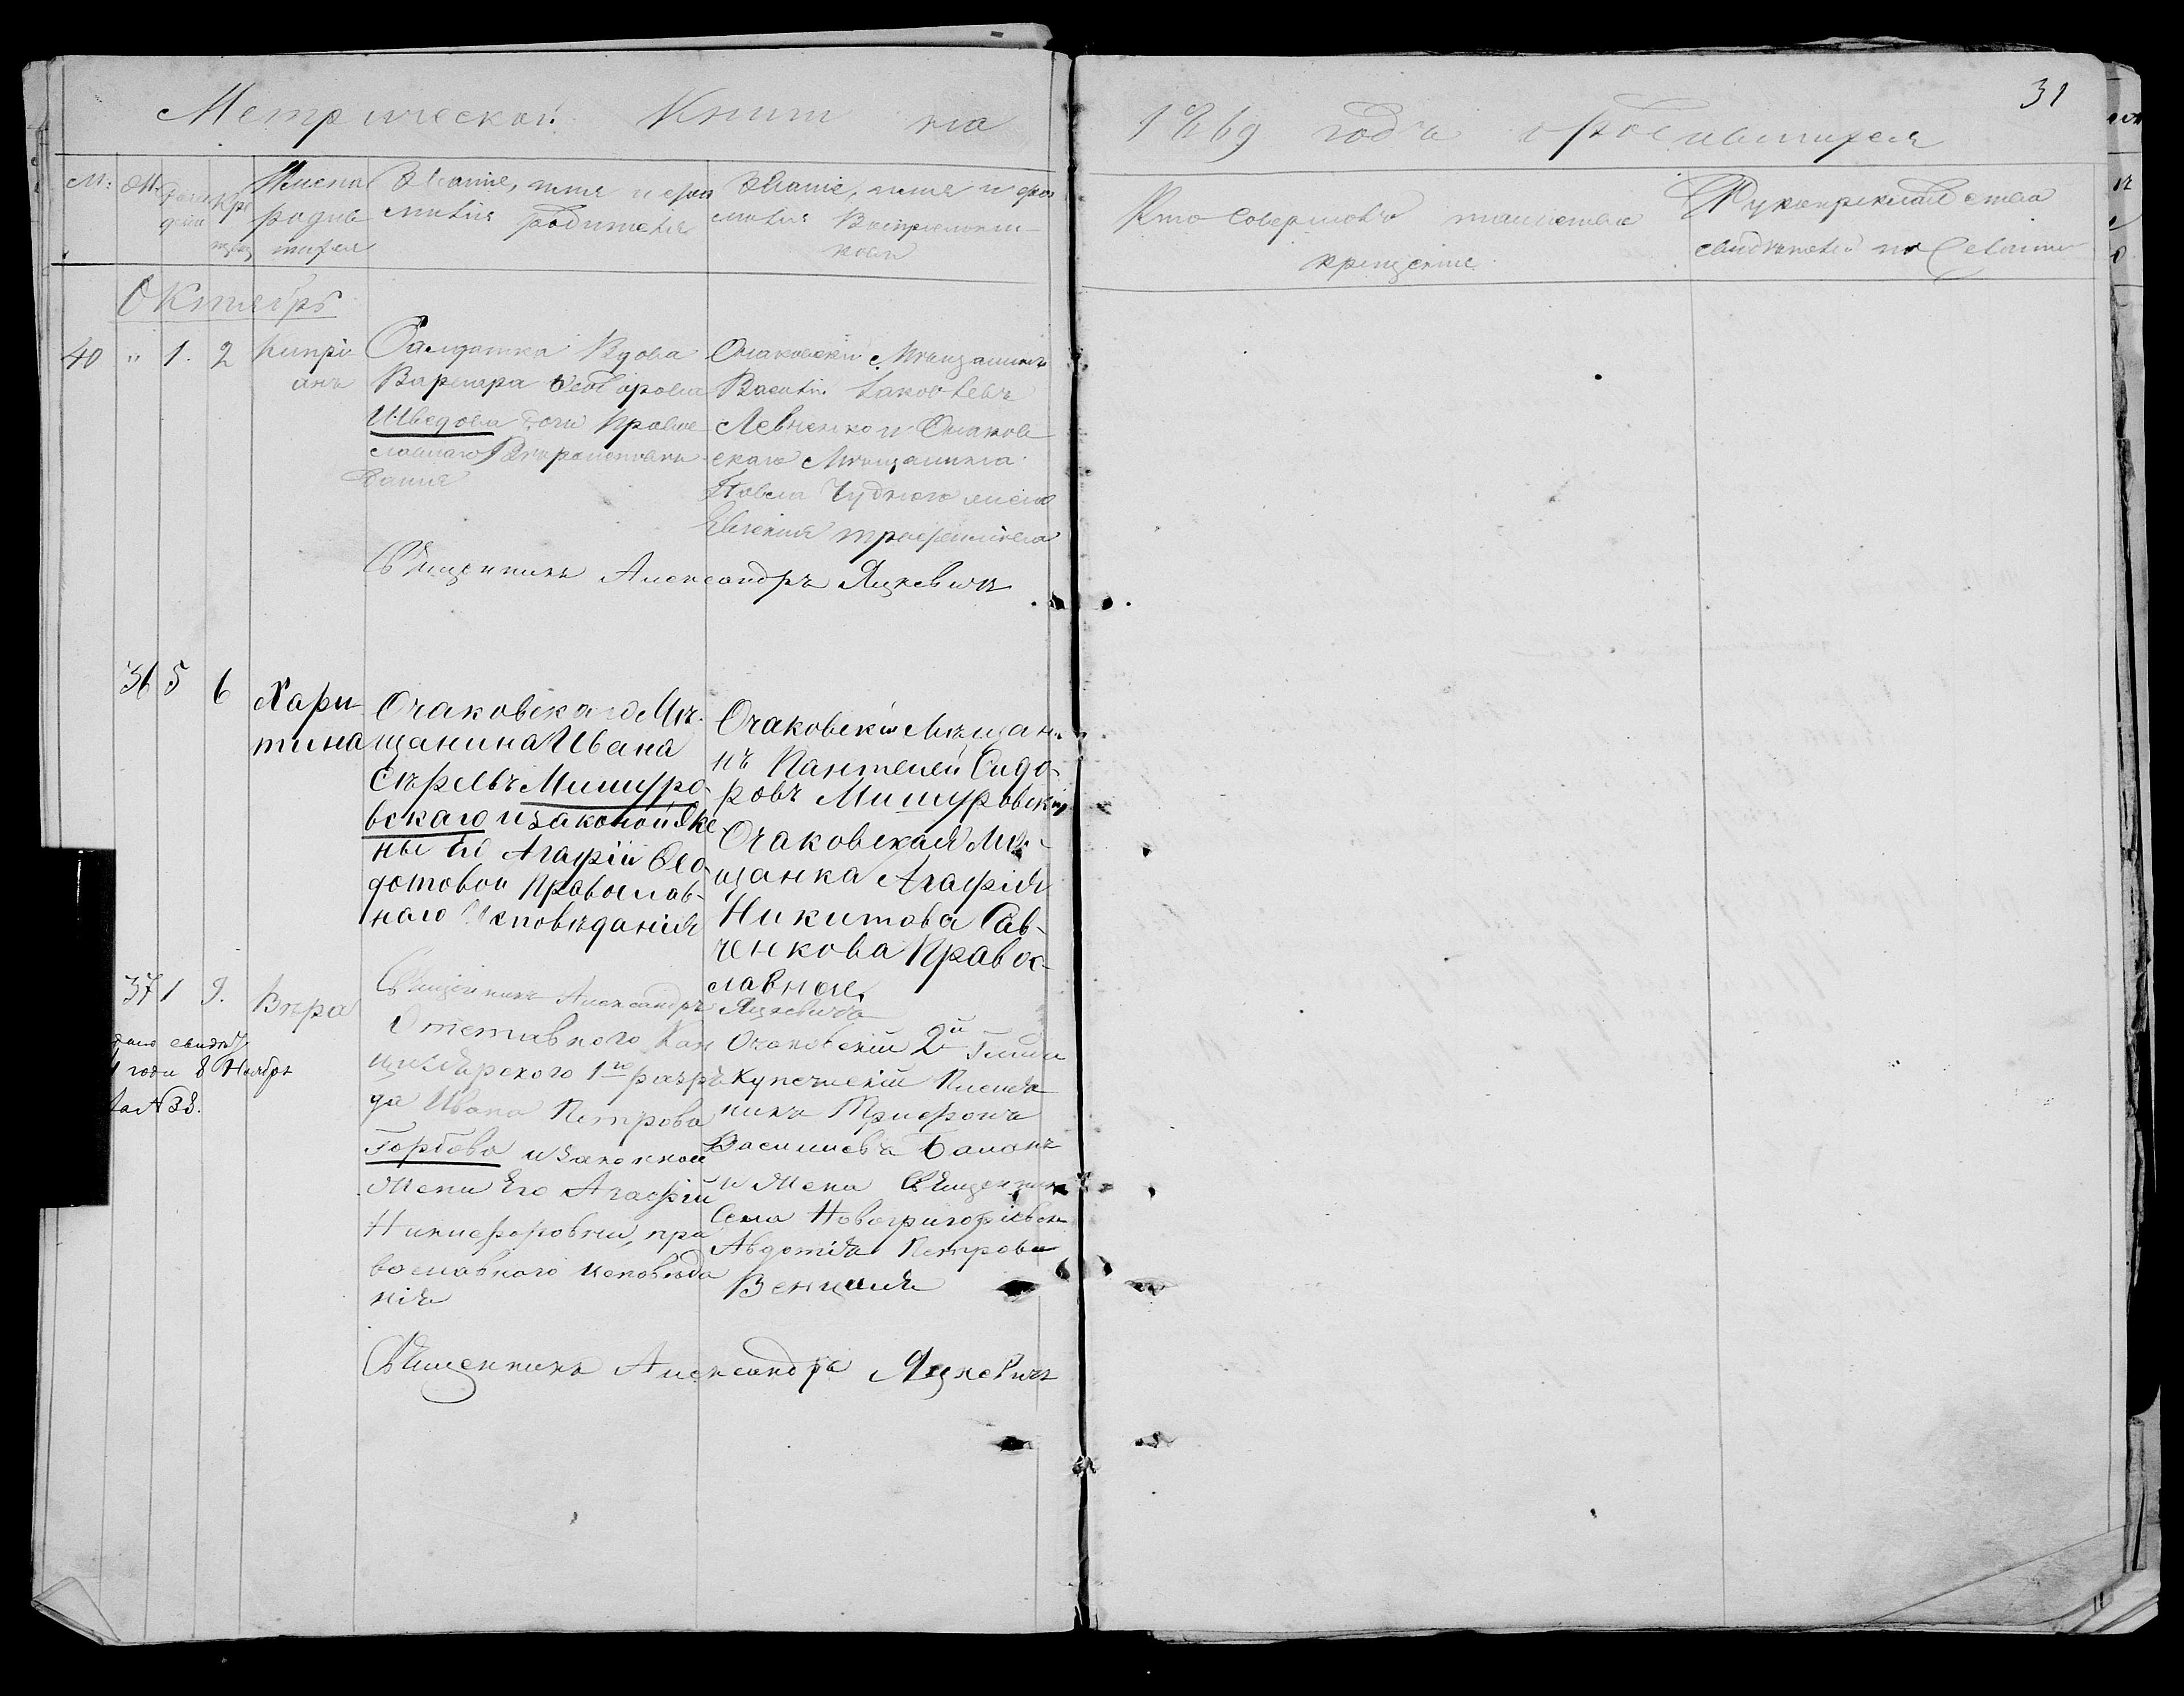 Метрической Книги на
1869 года о родившихся
31
М: Ж. рожд дни кре щен
Имена родив шихся
Званіе, имя и фа милія родителя
Званіе, имя и фа милія Воспріемни- ковъ
Кто Совершалъ таинство крещеніе
Рукоприкладство свидетелей по
Октябрь
40 " 1. 2
Кипрі
анъ
Салдатка Вдова
Варвара Ѳеодорова
Шведова
славнаго
данія
Очаковскій Мѣщанинъ
Василій Іаковлевъ
Левченко и Очаков
скаго Мѣщанина
Павла Чуднаго жена
Священникъ Александръ Яцкевичъ
36 5 6
Хари-
тина
Очаковскаго Мѣ-
щанина Ивана
Мишуро-
вскаго изаконой Же
ны его Агафіи Ѳео-
дотовой Православ-
наго Исповѣданія
Очаковскій Мѣщани-
нъ Пантелей Сидо-
ровъ Мишуровскій
Очаковская Мѣ-
щанка Агафія
Никитова Сав-
ченкова Правос-
лавные,
Священникъ Александръ Яцкевичъ
37 1 9.
Вѣра
дано свидѣ
годи 8 Ноября
за № 38.
Отставного Кан
целярского 1го разря
да Ивана Петрова
Горбово изаконной
Жени Его Агафіи
Никифоровни, пра
вославного исповѣда
нія
Очаковскій 2й Гилди
Купеческій Племя
никъ Трифонъ
Василиевъ Баланъ
и Жена Священника
Села Новогригориевки
Авдотія Петрова
Венцкая
Священникъ Александръ Яцкевичъ